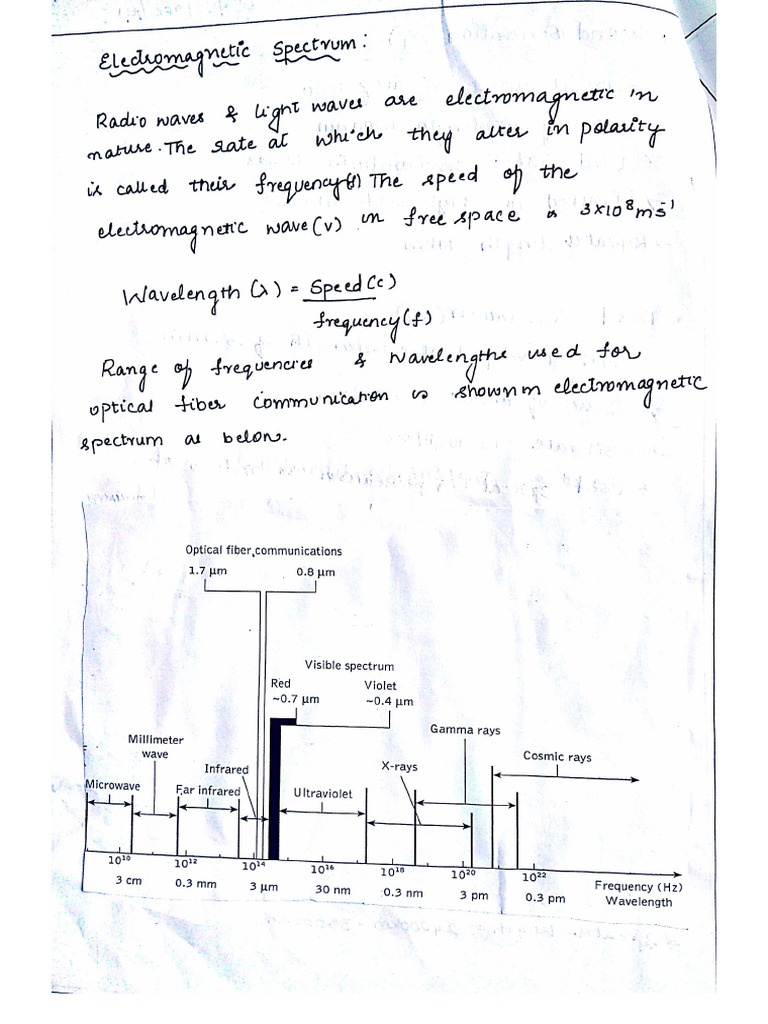 Electromagnetic Spectrum:
Radio waves & light waves are electromagnetic in
nature. The rate at which they alter in polarity
is called their frequency(f) The speed of the
electromagnetic wave (v) in free space is 3×10⁸ms⁻¹
Wavelength (λ) = Speed(c)
frequency(f)
Range of frequencies & wavelengths used for
optical fiber communication is shown in electromagnetic
spectrum as below.
Optical fiber communications
1.7 μm 0.8 μm
Visible spectrum
Red Violet
~0.7 μm ~0.4 μm
Gamma rays
Millimeter
wave
Cosmic rays
Infrared X-rays
Microwave Far infrared Ultraviolet
10¹⁰ 10¹² 10¹⁴ 10¹⁶ 10¹⁸ 10²⁰ 10²²
Frequency (Hz)
3 cm 0.3 mm 3 μm 30 nm 0.3 nm 3 pm 0.3 pm Wavelength